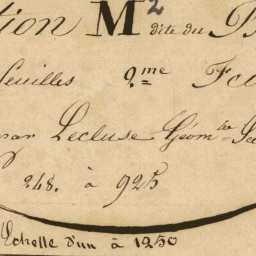 tion M2 dite du
feuilles 2.me
par Lecluse Géom.tre
248. à 925
Echelle d'un à 1250